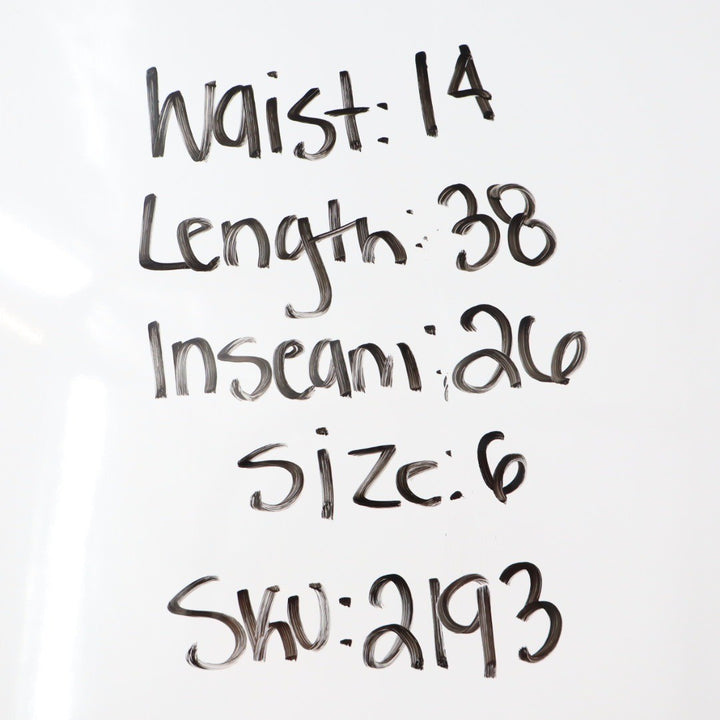 Waist: 14
Length: 38
Inseam: 26
Size: 6
SKU: 2193